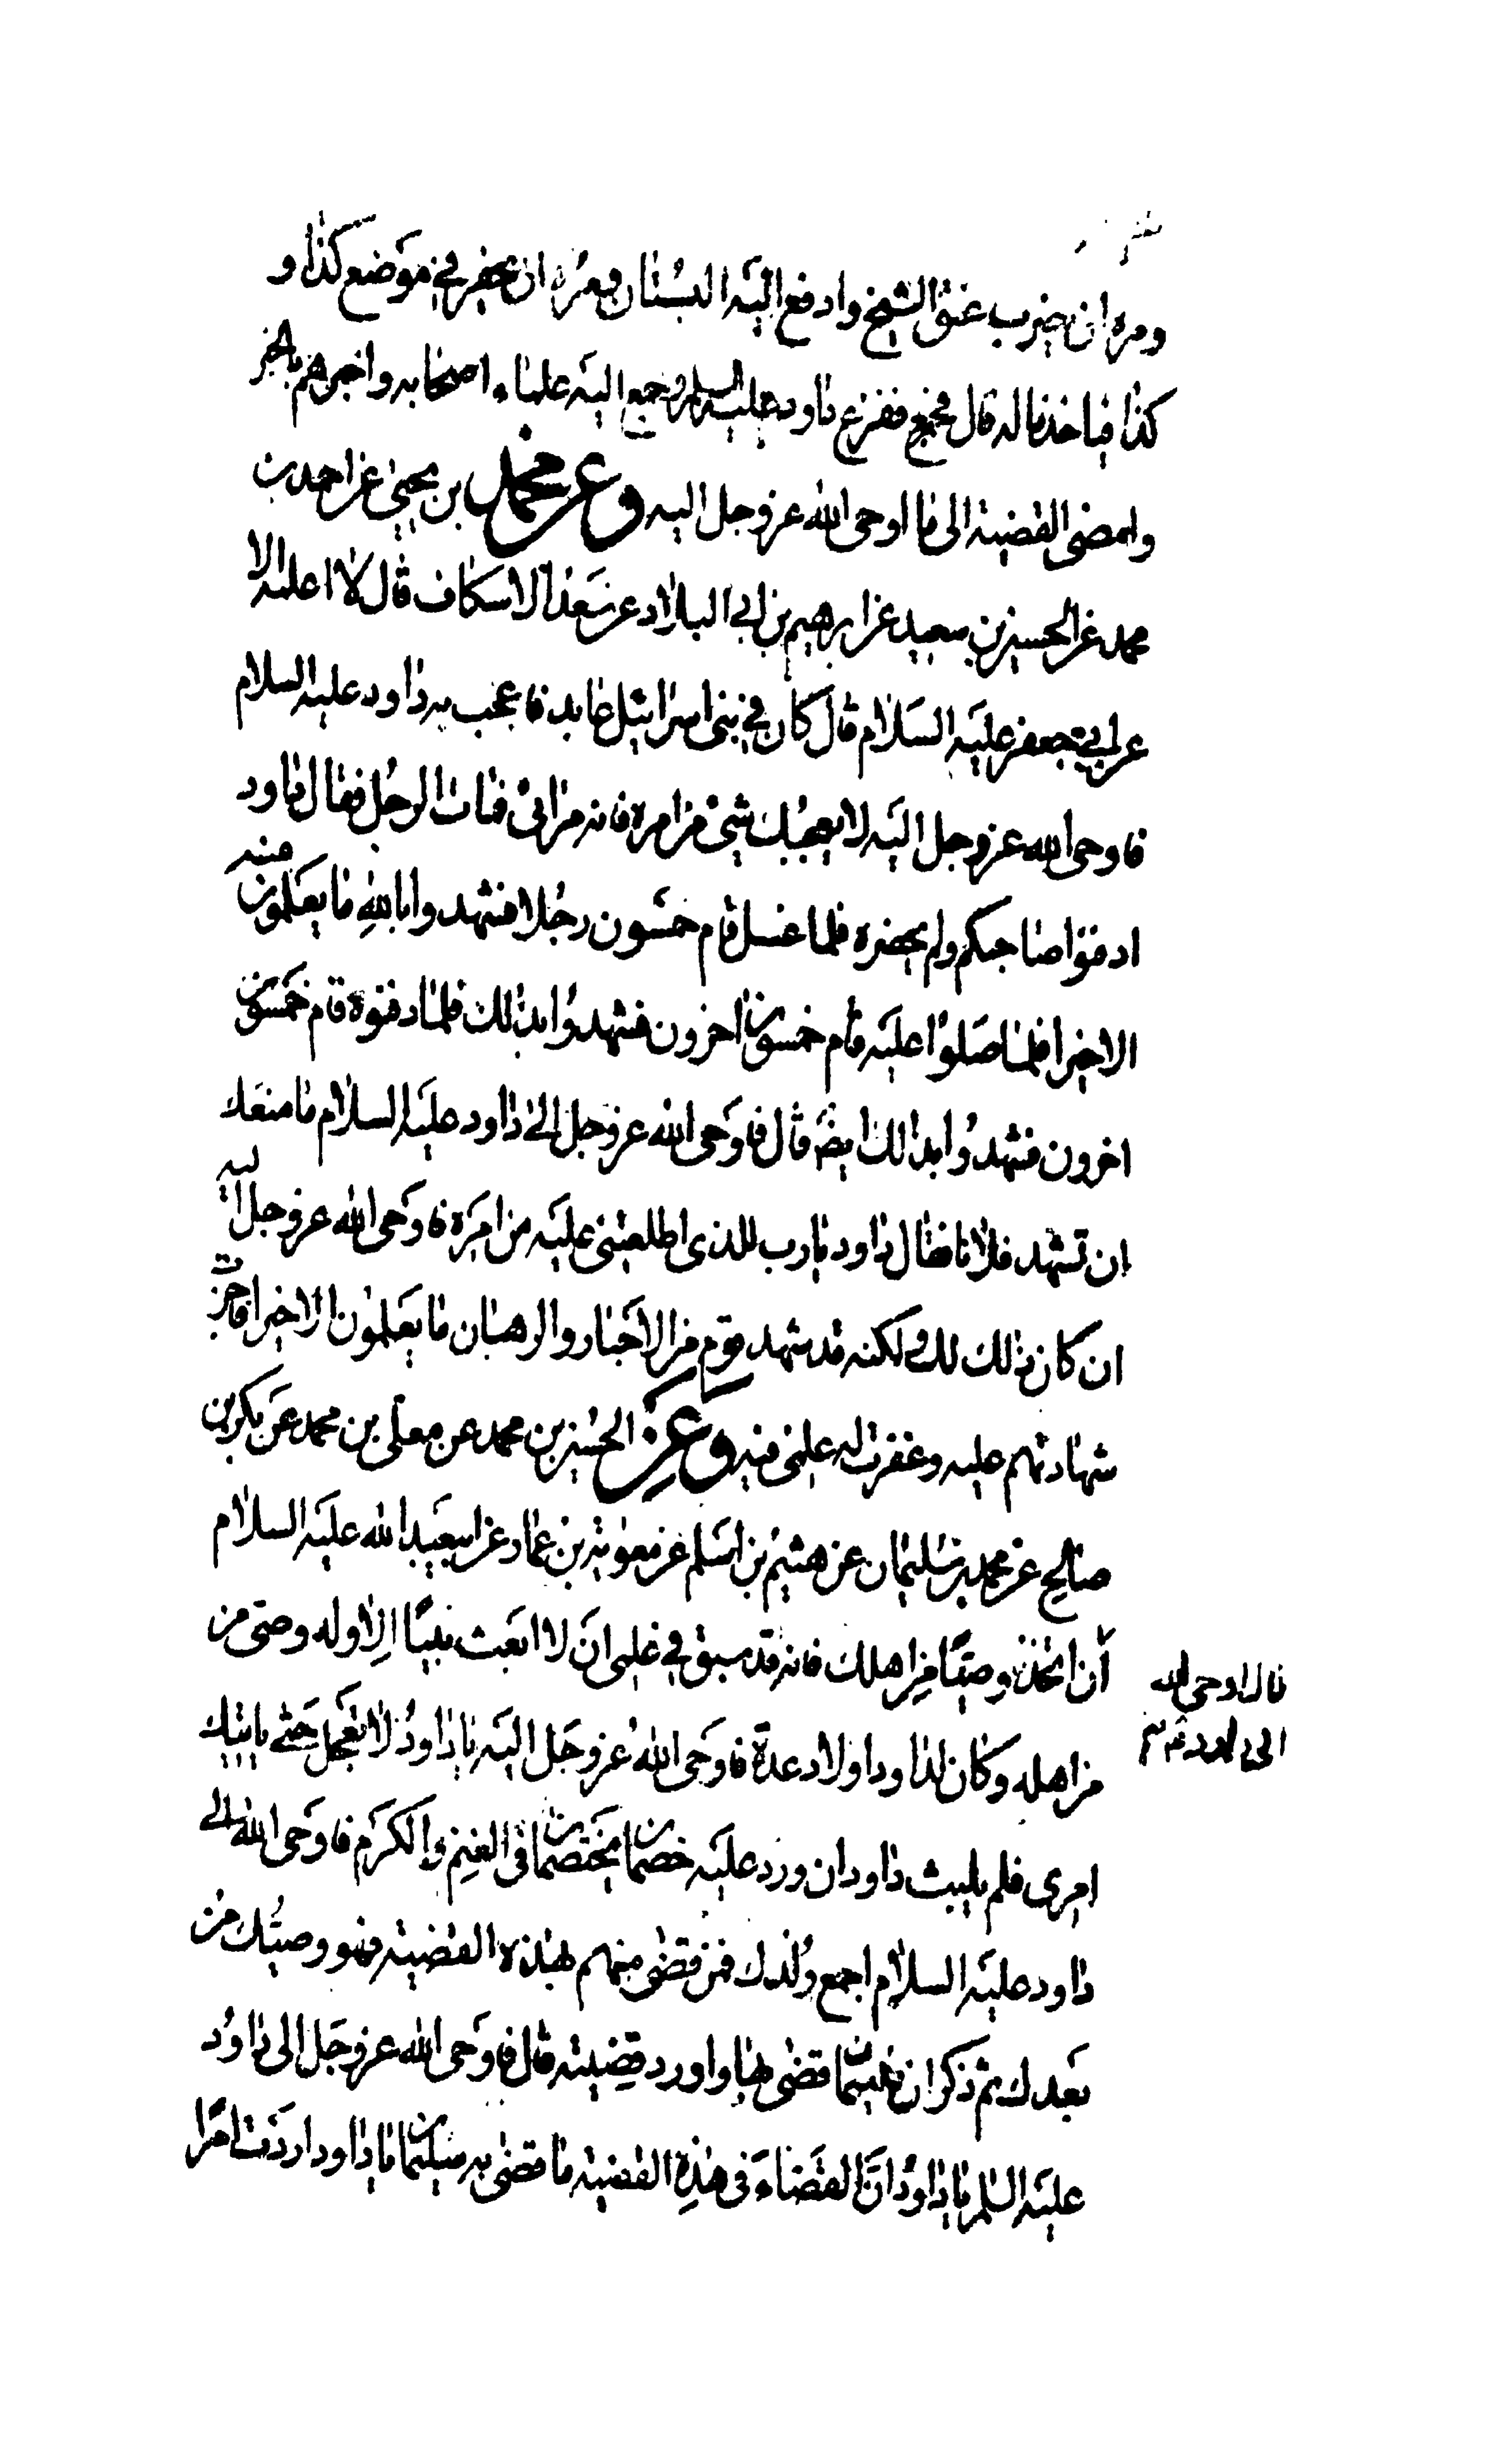 ومره ان يضرب عنق الشيخ وادفع اليه البستان ومره ان يحفر في موضع كذا و
كذا فياخذ ماله قال ففزع داود عليه السلم وجمع اليه علماء اصحابه واخبرهم بالخبر
وامضى القضية الى ما اوحى الله عز وجل اليه وعن محمد بن يحيى عن احمد بن
محمد عن الحسين بن سعيد عن ابرهيم بن ابي البلاد عن سعد الاسكاف قال لا اعلمه الا
عن ابي جعفر عليه السلام قال كان في بني اسرائيل عابد فاعجب به داود عليه السلام
فاوحى الله عز وجل اليه لا يعجبك شئ من امره فانه مرائي فمات الرجل فقال داود
ادفنوا صاحبكم ولم يحضره فلما غسل قام خمسون رجلا فشهدوا بالله ما يعلمون منه
الا خيرا فلما صلوا عليه قام خمسون اخرون فشهدوا بذلك فلما دفنوه قام خمسون
اخرون فشهدوا بذلك ايضا قال فاوحى الله عز وجل الى داود عليه السلام ما منعك
ان تشهد فلانا فقال داود يا رب للذي اطلعتني عليه من امره فاوحى الله عز وجل اليه
ان كان ذلك لك ولكنه قد شهد قوم من الاحبار والرهبان ما يعلمون الا خيرا فاجزت
شهادتهم عليه وغفرت له علمي فيه وعن الحسين بن محمد عن معلى بن محمد عن بكر بن
صالح عن محمد بن سليمان عن هشيم بن اسلم عن معوية بن عمار عن ابي عبد الله عليه السلام
قال اوحى الله
الى داود ع
أن اتخذ وصيًا من اهلك فانه قد سبق في علمي ان لا ابعث نبيًا الا وله وصي من
من اهله وكان لداود اولاد عدة فاوحى الله عز وجل اليه يا داود لا تعجل حتى ياتيك
امري فلم يلبث داود ان ورد عليه خصمان يختصمان في الغنم والكرم فاوحى الله الى
داود عليه السلام اجمع ولدك فمن قضى منهم بهذه القضية فهو وصيك من
بعدك ثم ذكر ان سليمان قضى بها واورد قضيته قال فاوحى الله عز وجل الى داود
عليه السلم يا داود ان القضاء في هذه القضية ما قضى به سليمان يا داود اردت امرًا